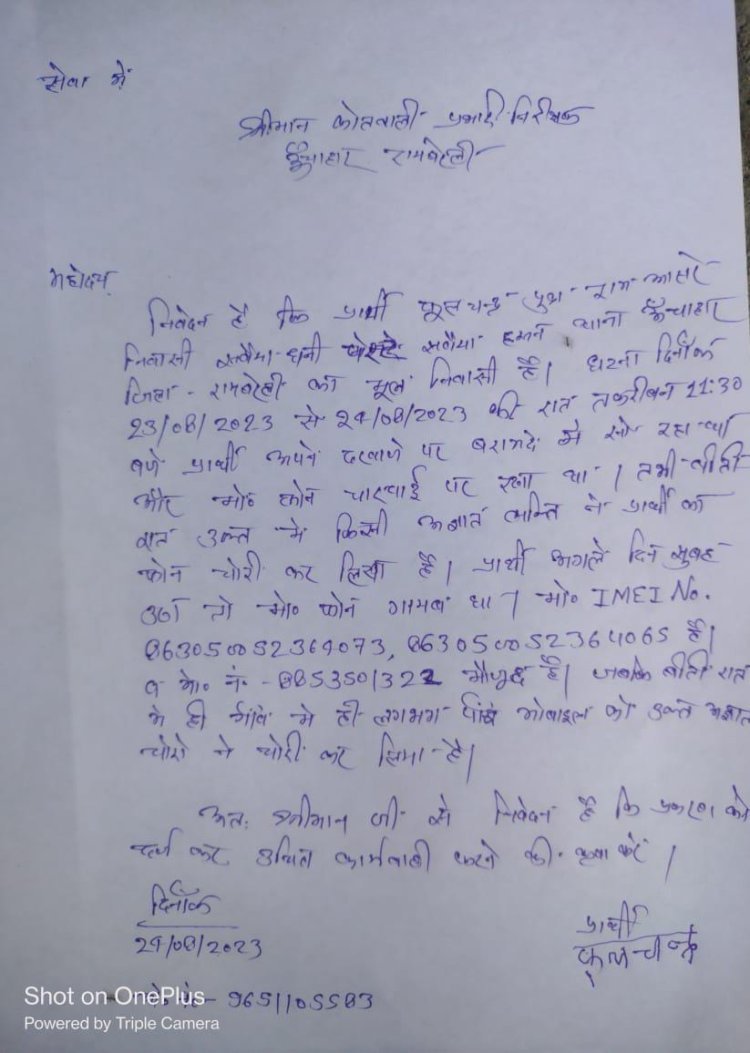 सेवा में
श्रीमान कोतवाली प्रभारी निरीक्षक
ऊँचाहार रायबरेली
महोदय
निवेदन है कि प्रार्थी फूलचन्द्र पुत्र राम आसरे
निवासी सवैया धनी सवैया हसन थाना ऊँचाहार
जिला - रायबरेली का मूल निवासी है। घटना दिनाँक
23/08/2023 से 24/08/2023 की रात तकरीबन 11:30
बजे प्रार्थी अपने दरवाजे पर बरामदे में सो रहा था
और मो० फोन चारपाई पर रखा था। तभी बीती
रात उक्त में किसी अज्ञात व्यक्ति ने प्रार्थी का
फोन चोरी कर लिया है। प्रार्थी अगले दिन सुबह
उठा तो मो० फोन गायब था। मो० IMEI No.
863050052364073, 863050052364065 है।
व मो० नं०- 8853501322 है। जबकि बीती रात
में ही गाँव में ही लगभग पाँच मोबाइल को उक्त अज्ञात
चोरों ने चोरी कर लिया है।
अतः श्रीमान जी से निवेदन है कि प्रकरण को
दर्ज कर उचित कार्यवाही करने की कृपा करें।
दिनाँक
24/08/2023
प्रार्थी
फूलचन्द्र
मो० नं०- 9651105583
Shot on OnePlus
Powered by Triple Camera